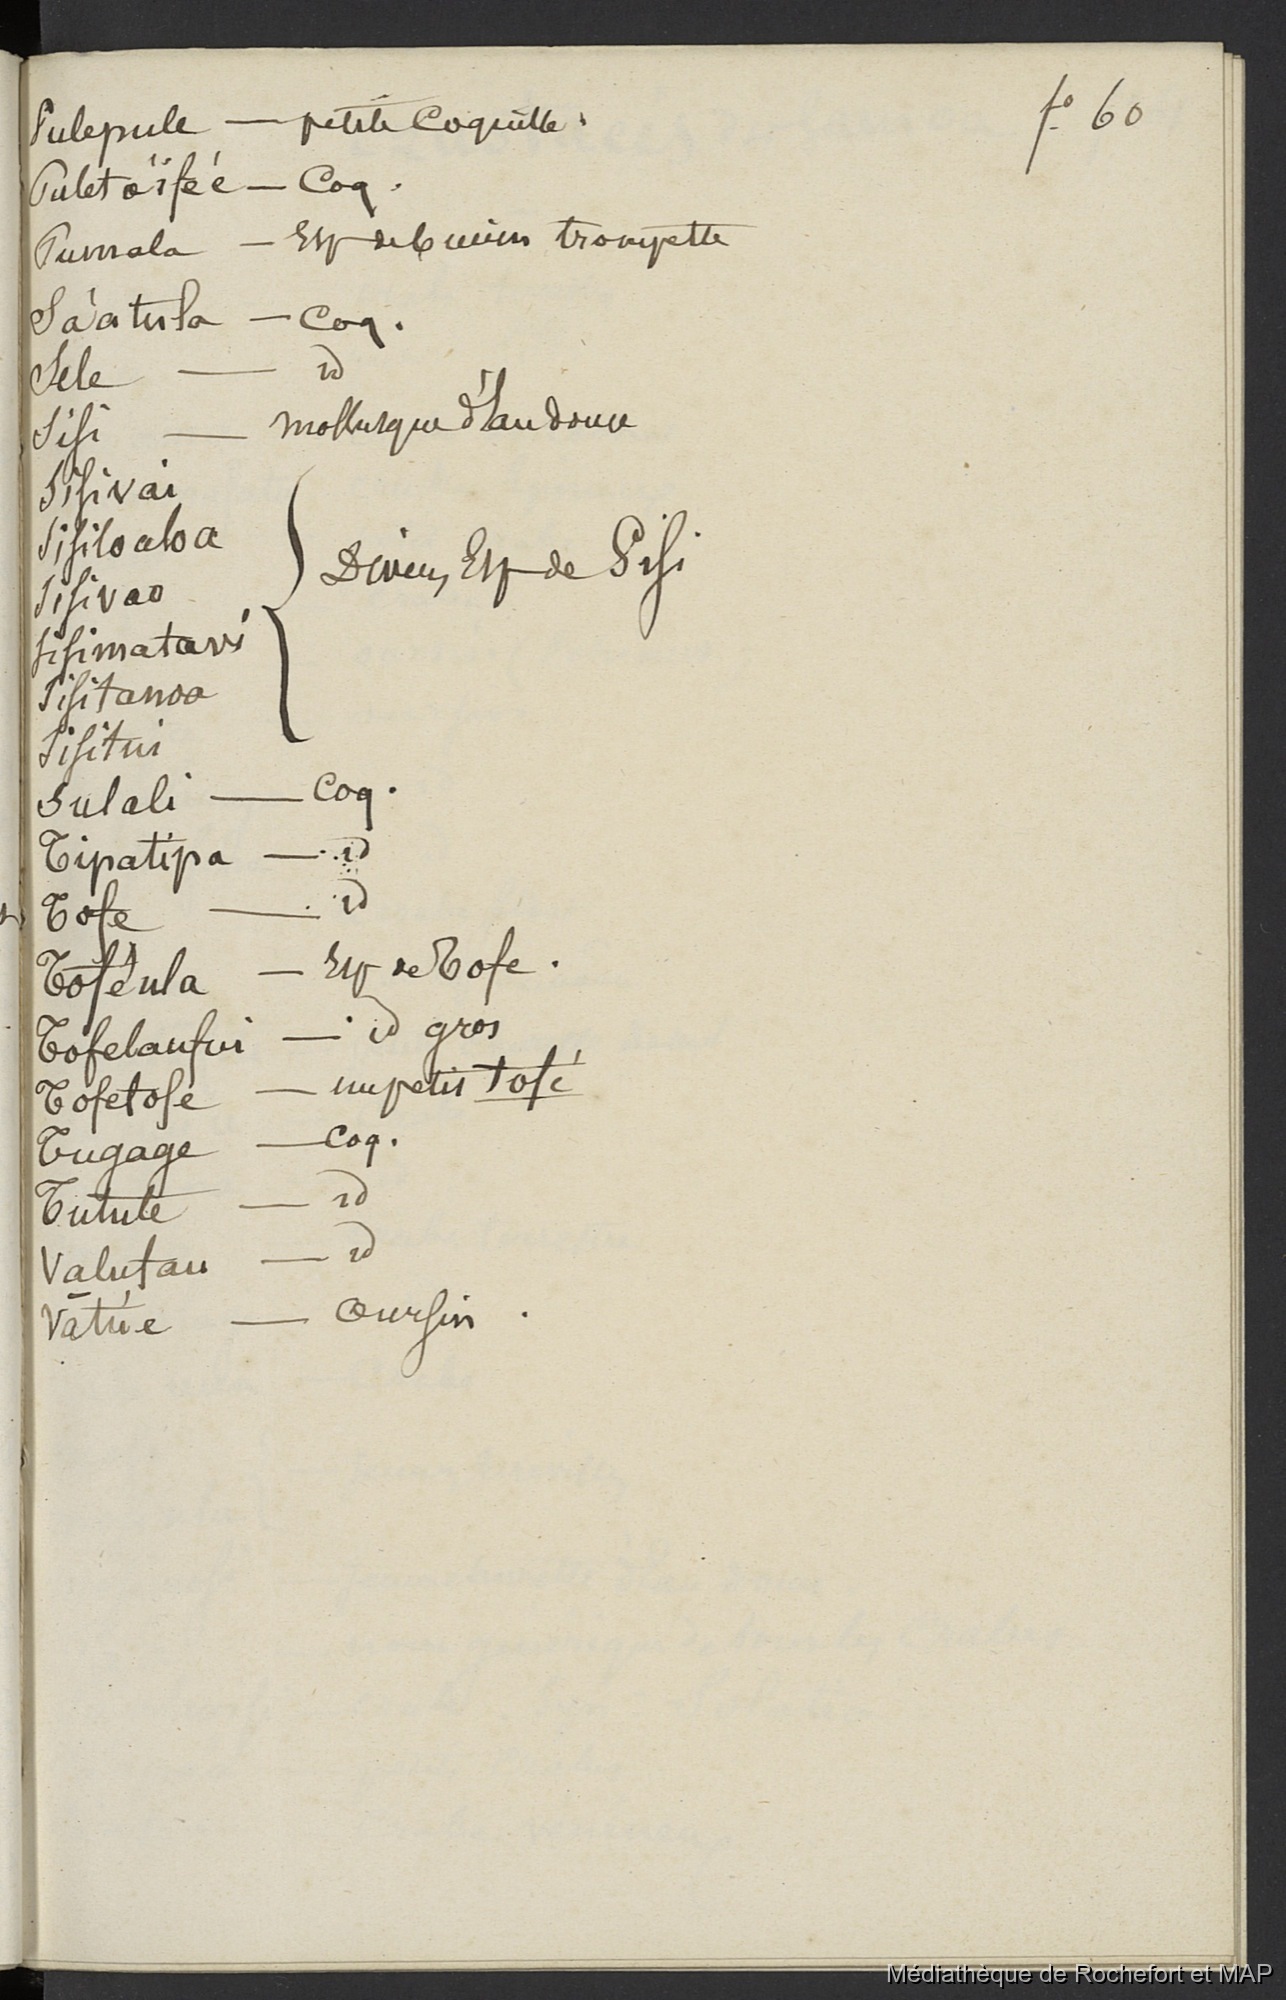 f° 60
Pulepule — petite Coquille.
Puletoïfeé — Coq.
Pumala — Esp de trompette
Sa'atula — Coq.
Sele — id
Sisi — mollusque d'Eau douce
Sisivai
Sisiloaloa
Sisivao
Sisimatavi
Sisitanoa
Sisitui
Divers Esp de Sisi
Sulali — Coq.
Tipatipa — id
Tofe — id
Tofe'ula — Esp de Tofe.
Tofelaufui — id gros
Tofetofe — un petit tofé
Tugage — Coq.
Tutule — id
Valutau — id
Vātu'e — Oursin.
Médiathèque de Rochefort et MAP